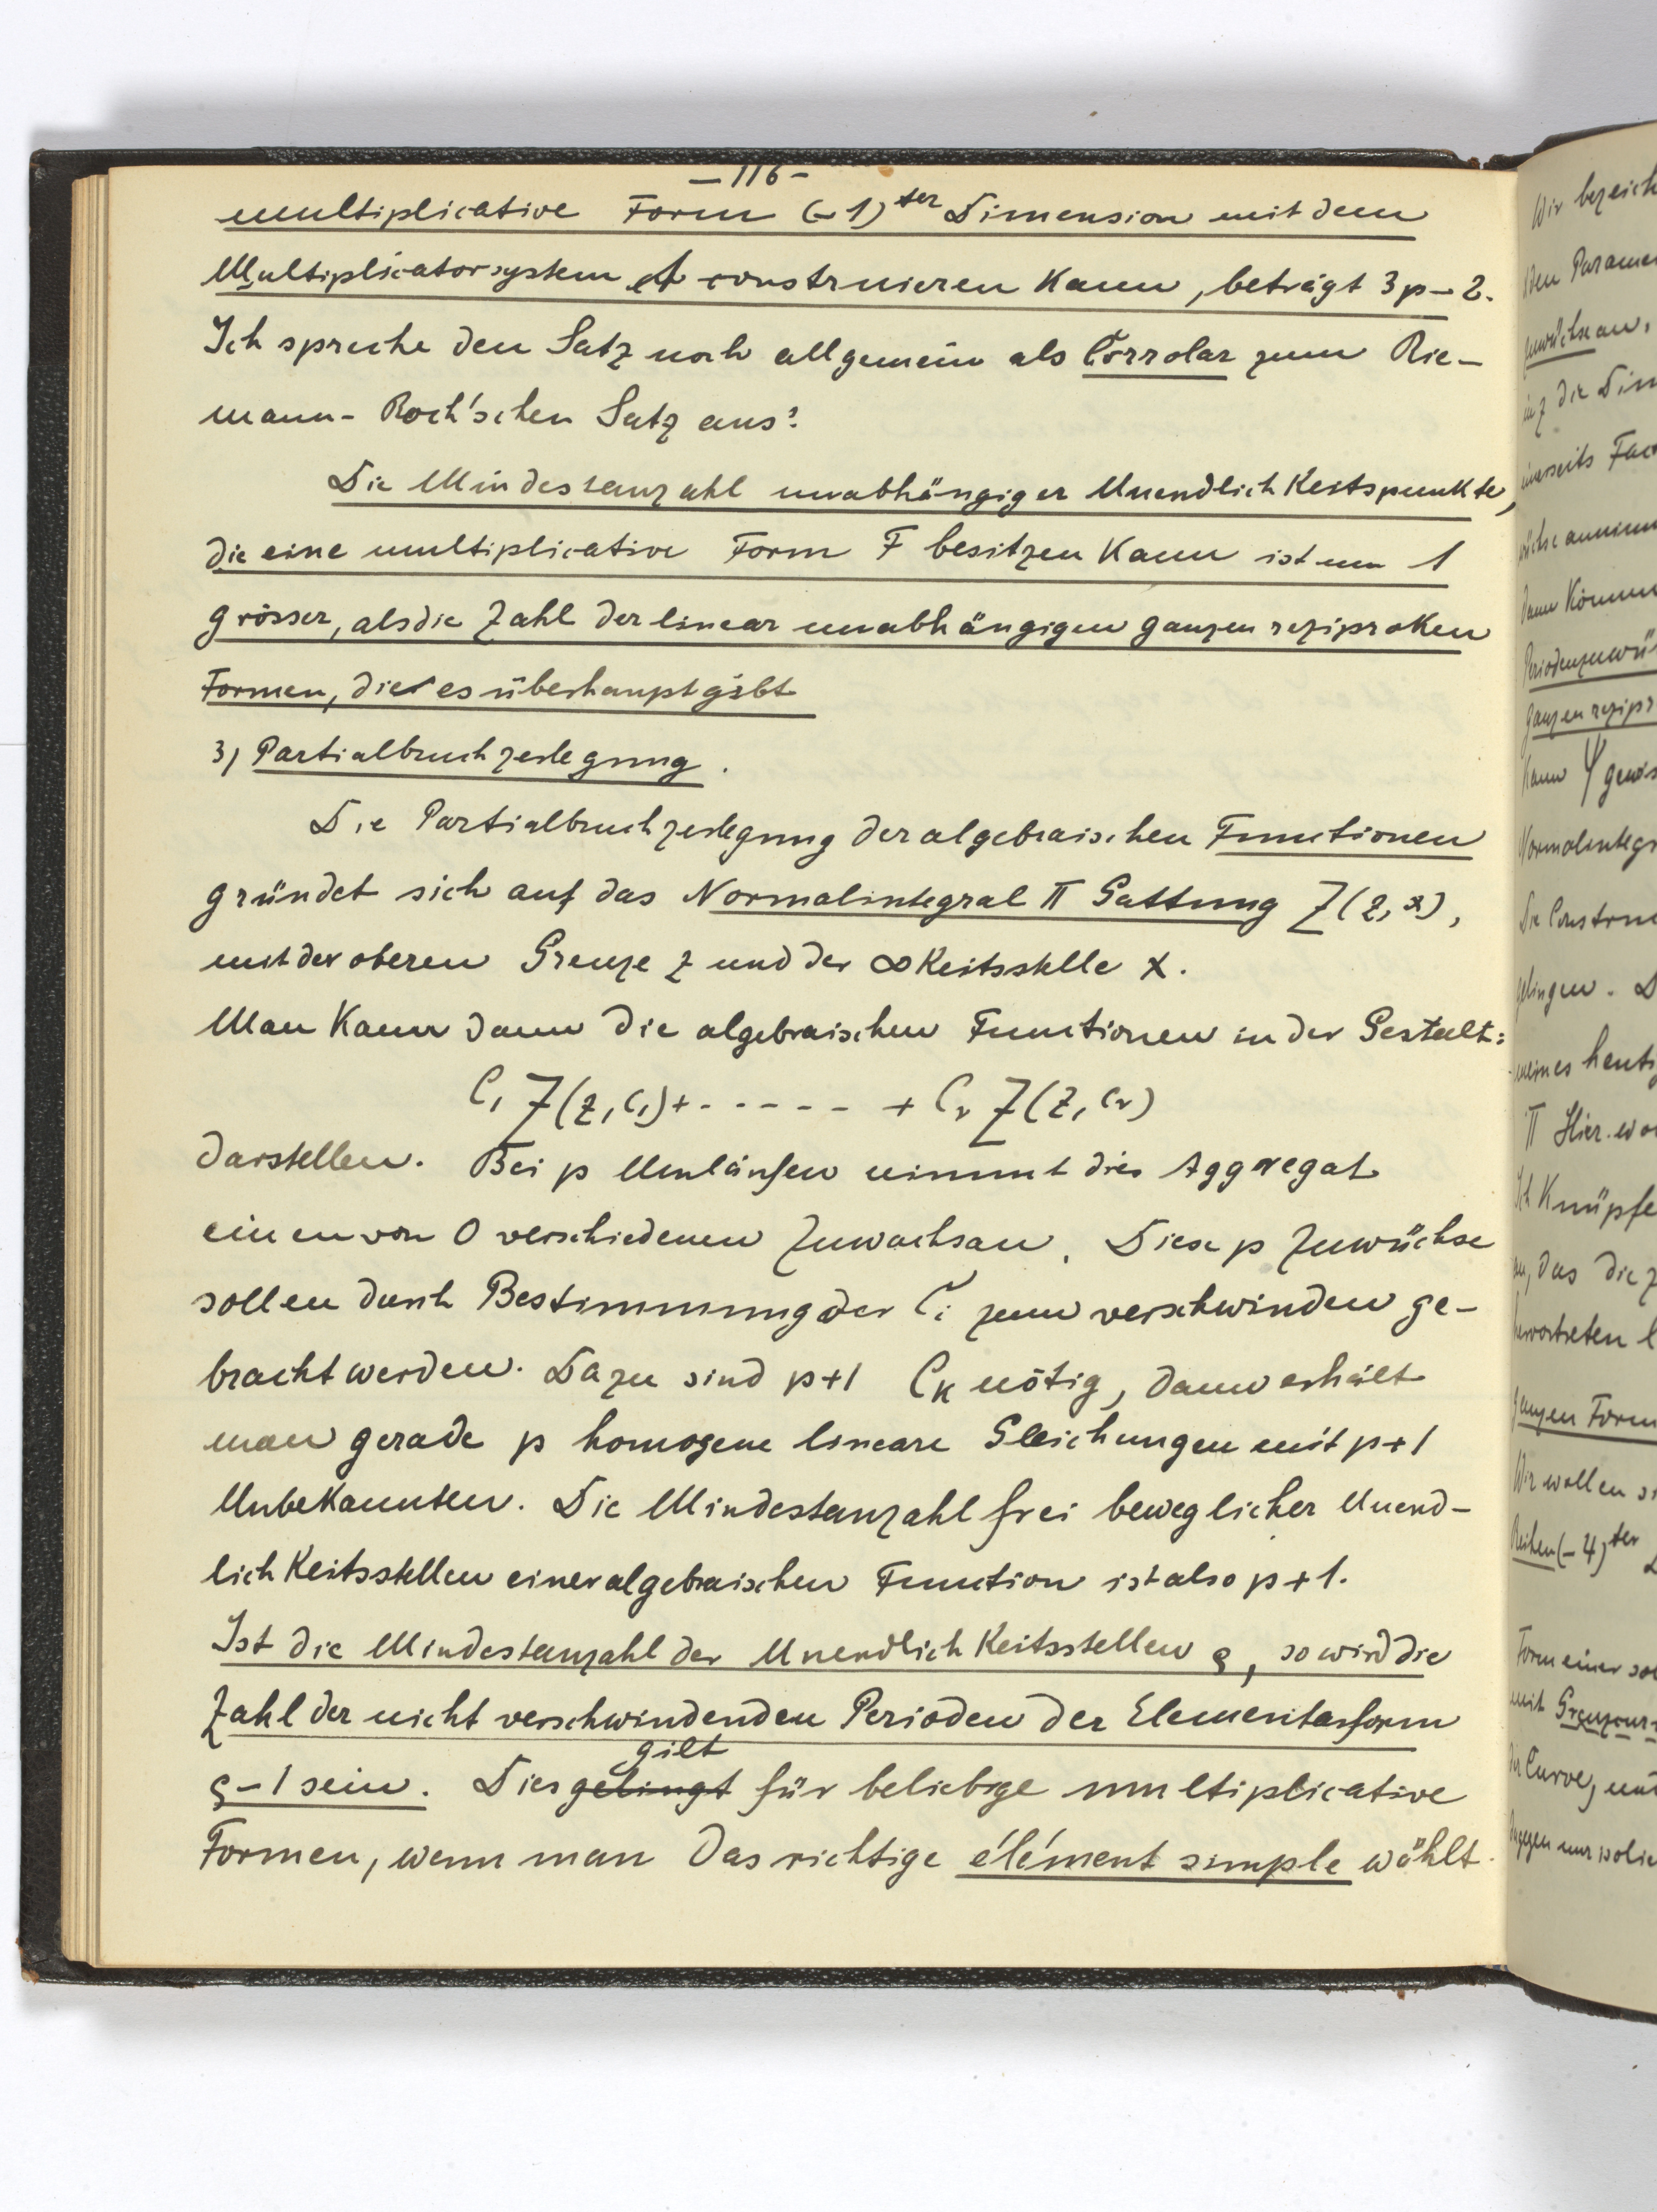 -116-
multiplicative Form (-1)ter Dimension mit dem
Multiplicatorsystem A construieren kann, beträgt 3p-2.
Ich spreche den Satz noch allgemein als Corrolar zum Rie-
mann-Roch'schen Satz aus:
Die Mindestanzahl unabhängiger Unendlichkeitspunkte,
die eine multiplicative Form F besitzen kann ist um 1
grösser, als die Zahl der linear unabhängigen ganzen reziproken
Formen, die es überhaupt gibt
3) Partialbruchzerlegung.
Die Partialbruchzerlegung der algebraischen Functionen
gründet sich auf das Normalintegral II Gattung Z(z,x),
mit der oberen Grenze z und der ∞keitsstelle x.
Man kann dann die algebraischen Functionen in der Gestalt:
C₁ Z(z,c₁)+------+Cν Z(z,cν)
darstellen. Bei p Umläufen nimmt dies Aggregat
einen von 0 verschiedenen Zuwachs an. Diese p Zuwüchse
sollen durch Bestimmung der Ci zum verschwinden ge-
bracht werden. Dazu sind p+1 CK nötig, dann erhält
man gerade p homogene lineare Gleichungen mit p+1
Unbekannten. Die Mindestanzahl frei beweglicher Unend-
lichkeitsstellen einer algebraischen Function ist also p+1.
Ist die Mindestanzahl der Unendlichkeitsstellen ϱ, so wird die
Zahl der nicht verschwindenden Perioden der Elementarform
ϱ-1 sein. Dies gelingt gilt für beliebige multiplicative
Formen, wenn man das richtige élément simple wählt.
Wir bezeich
den Parame
Zuwüchse an,
die Dim
einerseits Fac
Dann könn
Periodenzuwü
ganzen rezipr
kann Ψ gewis
Normalintegr
Die Constru
gelingen. D
meines heuti
II Hier wo
Ich knüpfe
an, das die z
hervortreten l
ganzen Form
Wir wollen si
Reihen (-4)ter
Form einer sol
mit Grenzcur
der Curve, und
dagegen nur